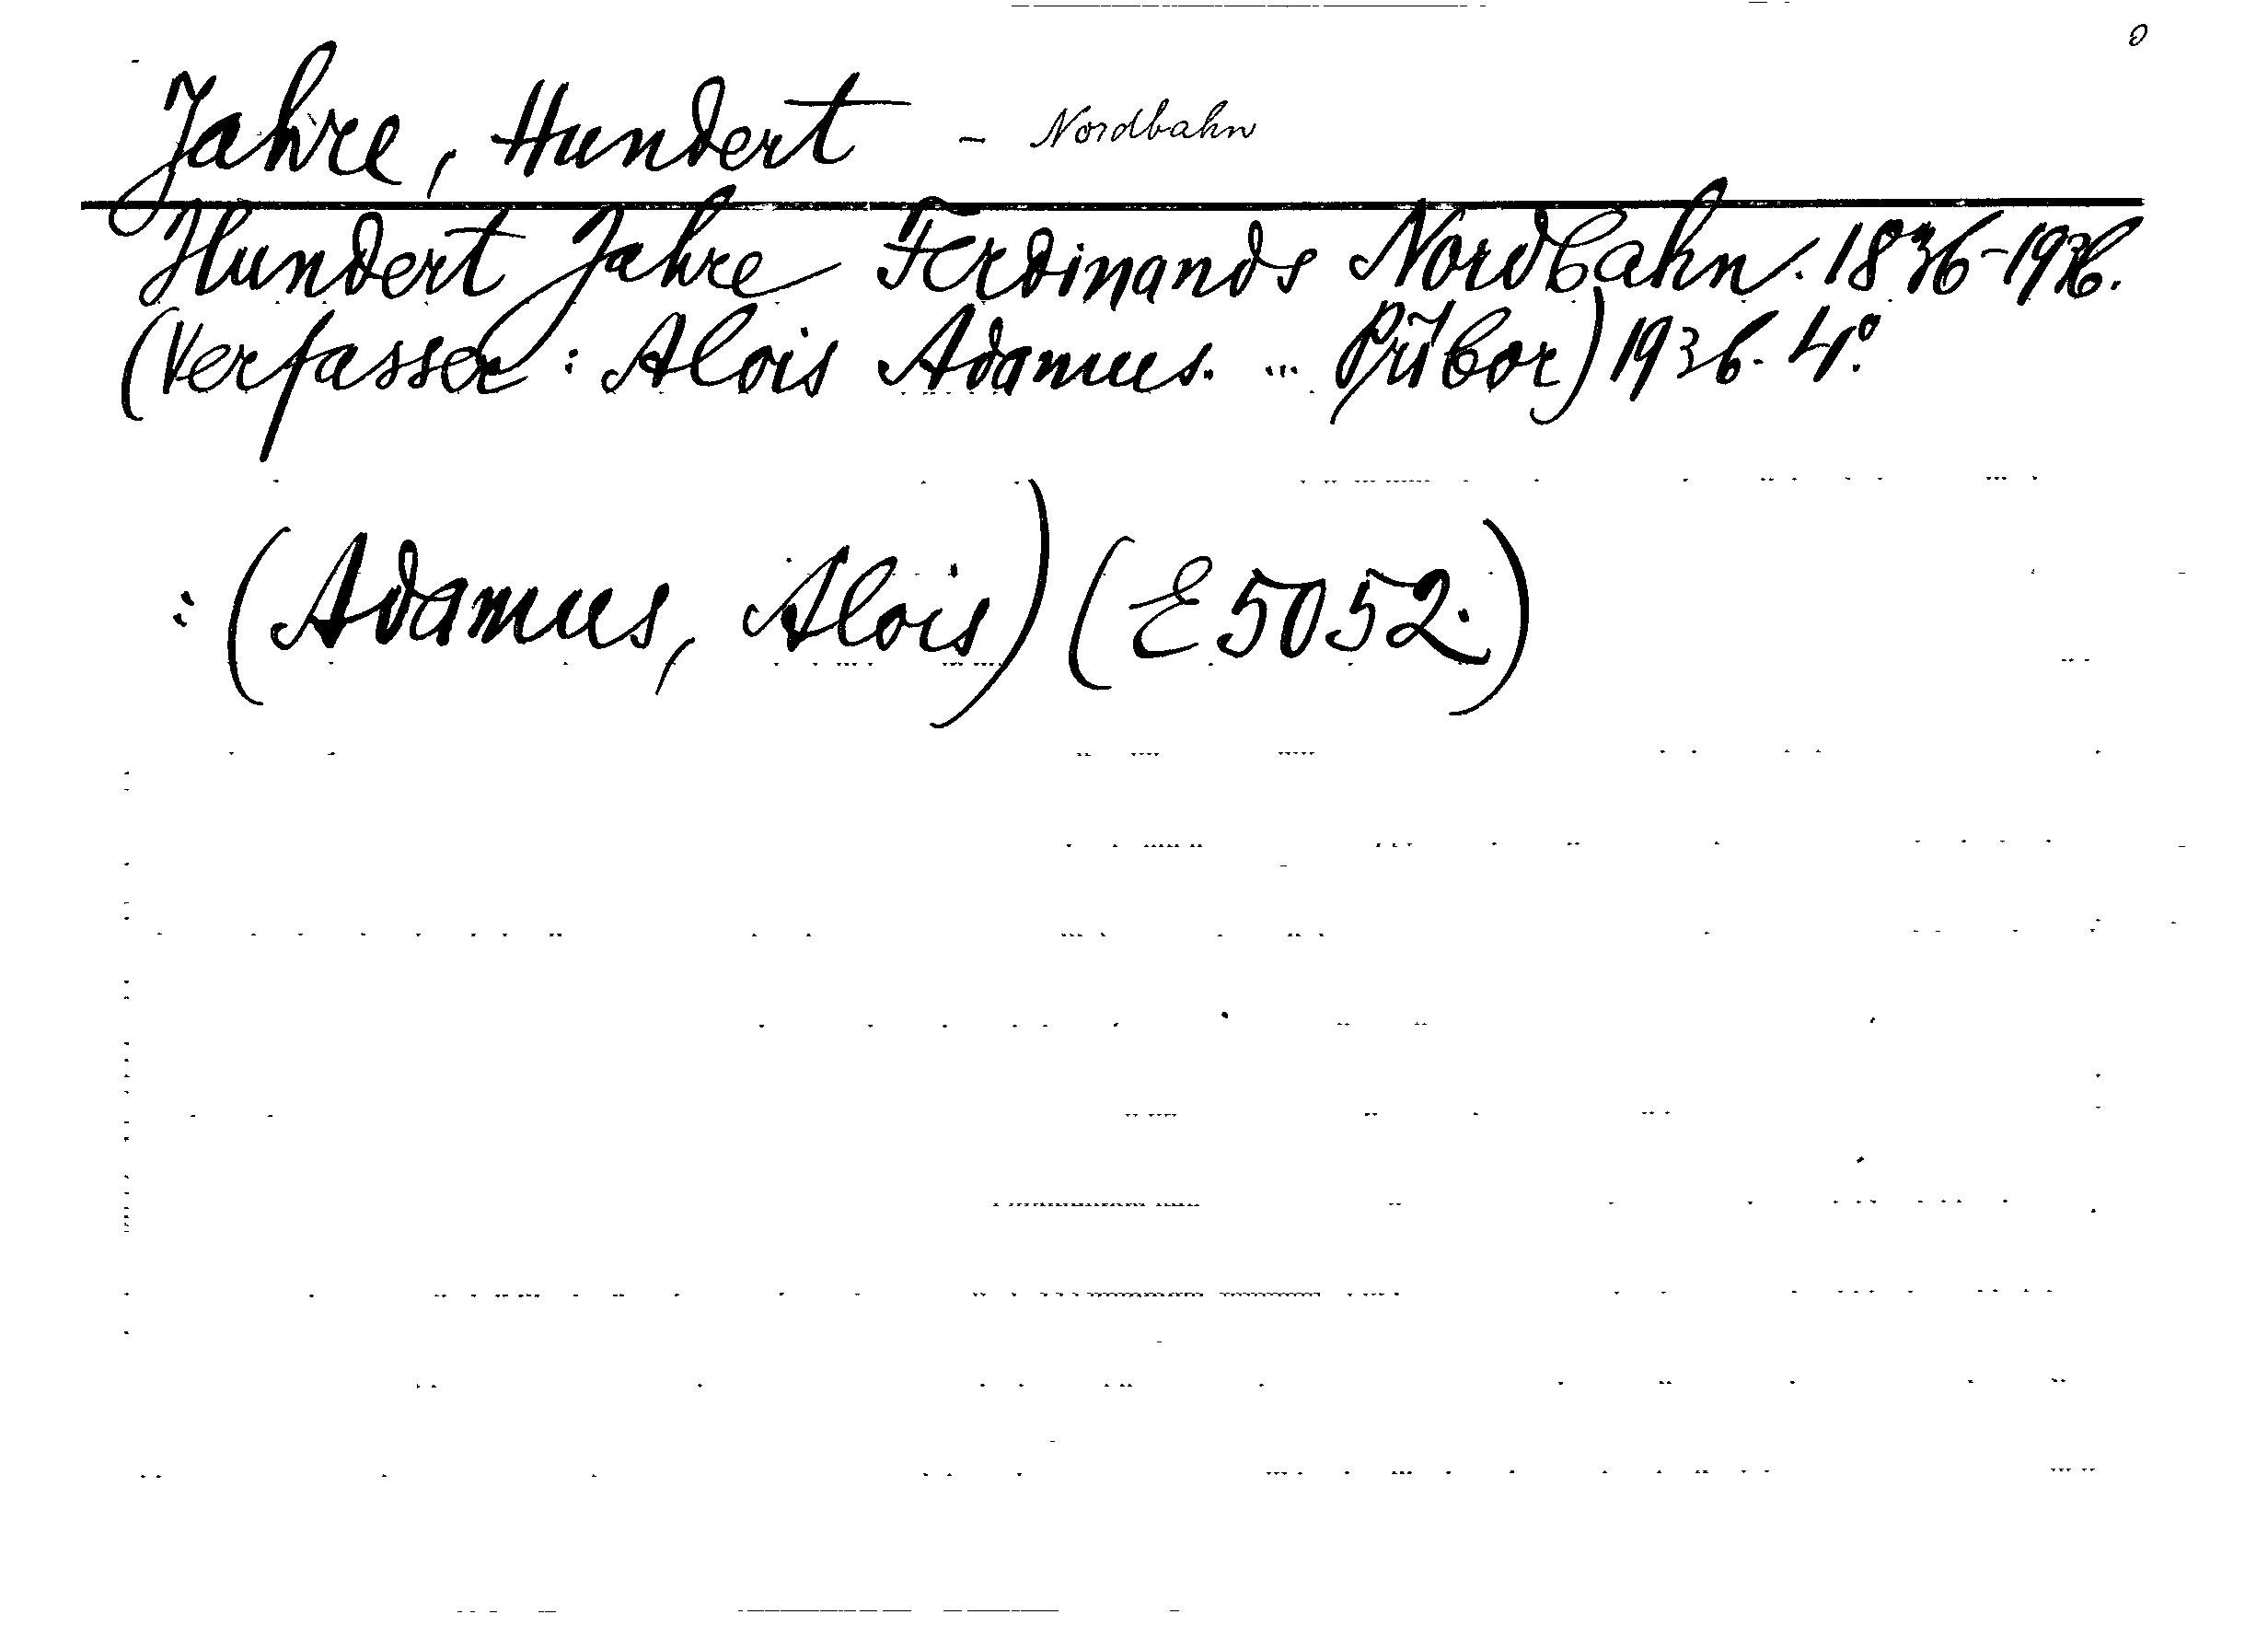 Jahre, Hundert - Nordbahn
Hundert Jahre Ferdinands Nordbahn. 1836-1936.
(Verfasser: Alois Adamus. ... Příbor) 1936. 4°.
: (Adamus, Alois) (E 5052.)